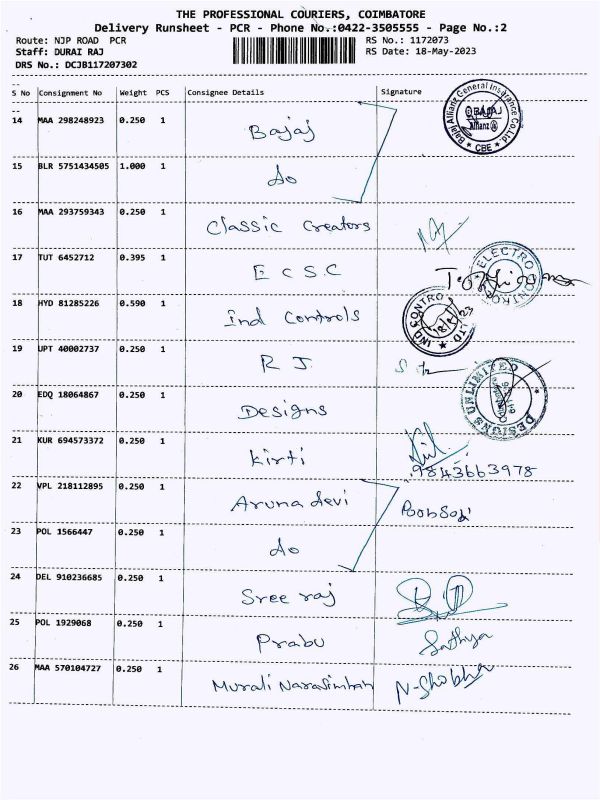 THE PROFESSIONAL COURIERS, COIMBATORE
Delivery Runsheet - PCR - Phone No.:0422-3505555 - Page No.:2
Route: NJP ROAD PCR RS No.: 1172073
Staff: DURAI RAJ RS Date: 18-May-2023
DRS No.: DCJB117207302
S No Consignment No Weight PCS Consignee Details Signature
Bajaj Allianz General Insurance Co.Ltd. BAJAJ Allianz CBE
14 MAA 298248923 0.250 1 Bajaj
15 BLR 5751434505 1.000 1 do
16 MAA 293759343 0.250 1 Classic Creators
17 TUT 6452712 0.395 1 E C S C
ELECTRO CONTROL
18 HYD 81285226 0.590 1 Ind Controls
IND CONTRO LTD
19 UPT 40002737 0.250 1 R J.
20 EDQ 18064867 0.250 1 Designs
DESIGNS UNLIMITED
21 KUR 694573372 0.250 1 kirti
9843663978
22 VPL 218112895 0.250 1 Aruna devi
23 POL 1566447 0.250 1 do
24 DEL 910236685 0.250 1 Sree raj
25 POL 1929068 0.250 1 Prabu Sathya
26 MAA 570104727 0.250 1 Murali Narasimhan N-Shobha